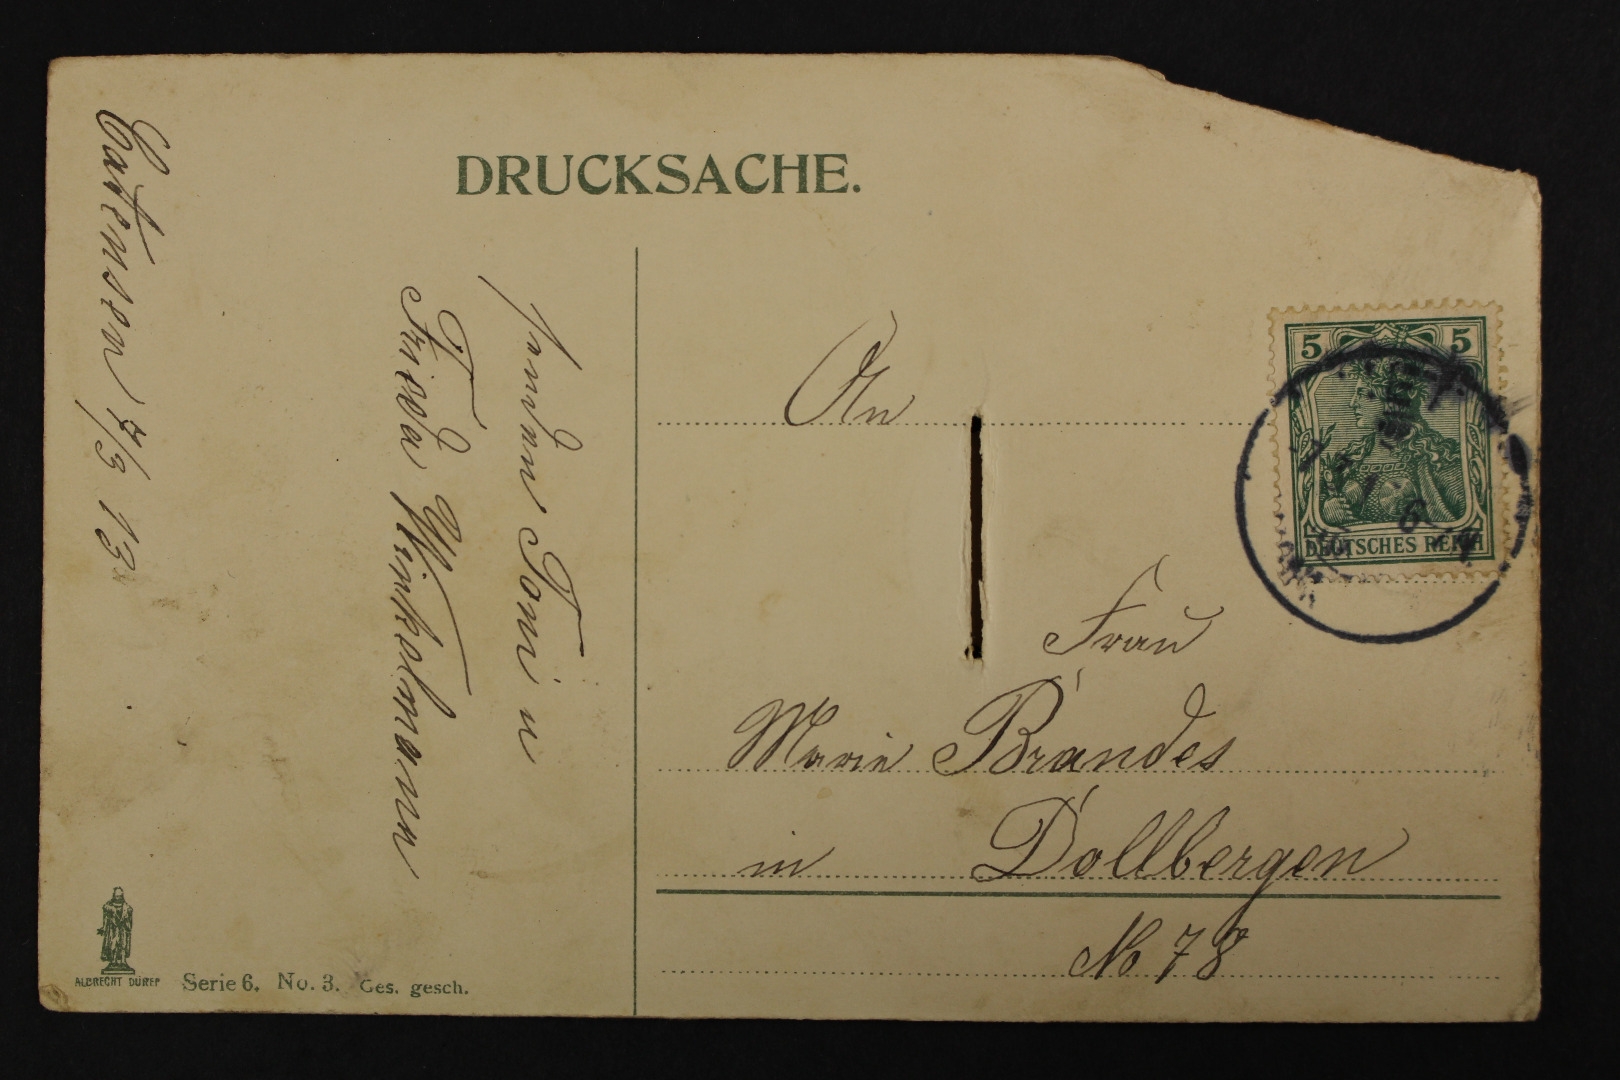 DRUCKSACHE.
Catensen 7/3 13
senden Toni u
Frieda Winkelmann
An
Frau
Marie Brandes
in Dollbergen
No 78
5 5
DEUTSCHES REICH
ALBRECHT DÜRER
Serie 6. No. 3. Ges. gesch.